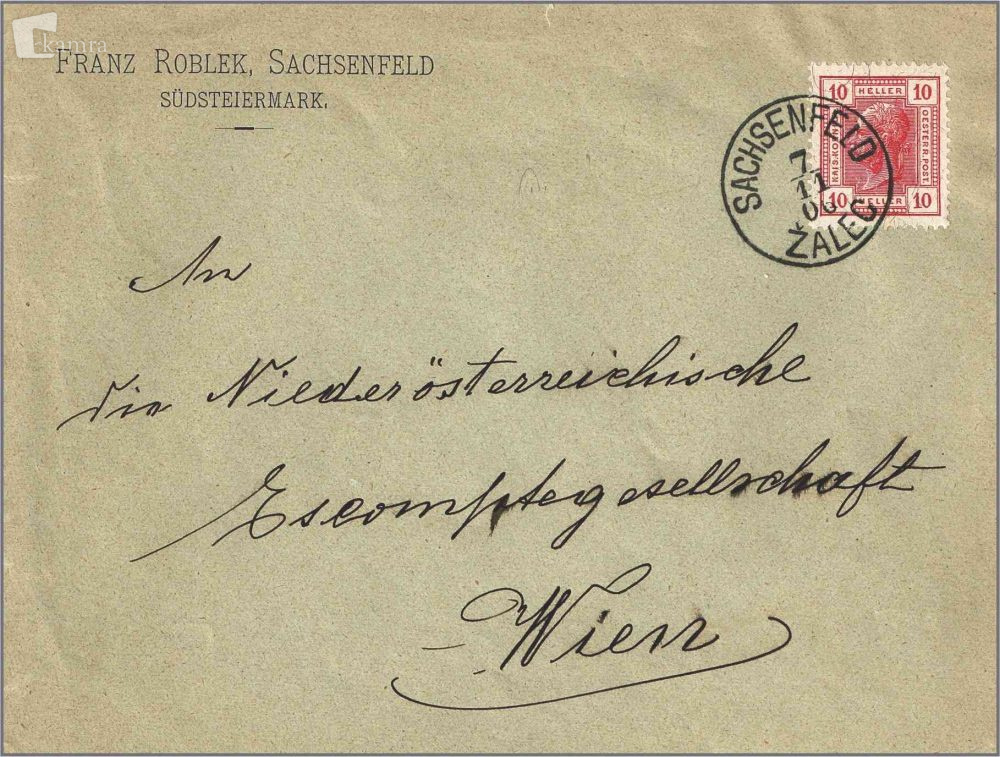 kamra
FRANZ ROBLEK, SACHSENFELD
SÜDSTEIERMARK.
10 HELLER 10
KAIS. KÖN.
OESTERR. POST
10 HELLER 10
SACHSENFELD
7
11
06
ŽALEC
An
die Niederösterreichische
Escomptegesellschaft
Wien